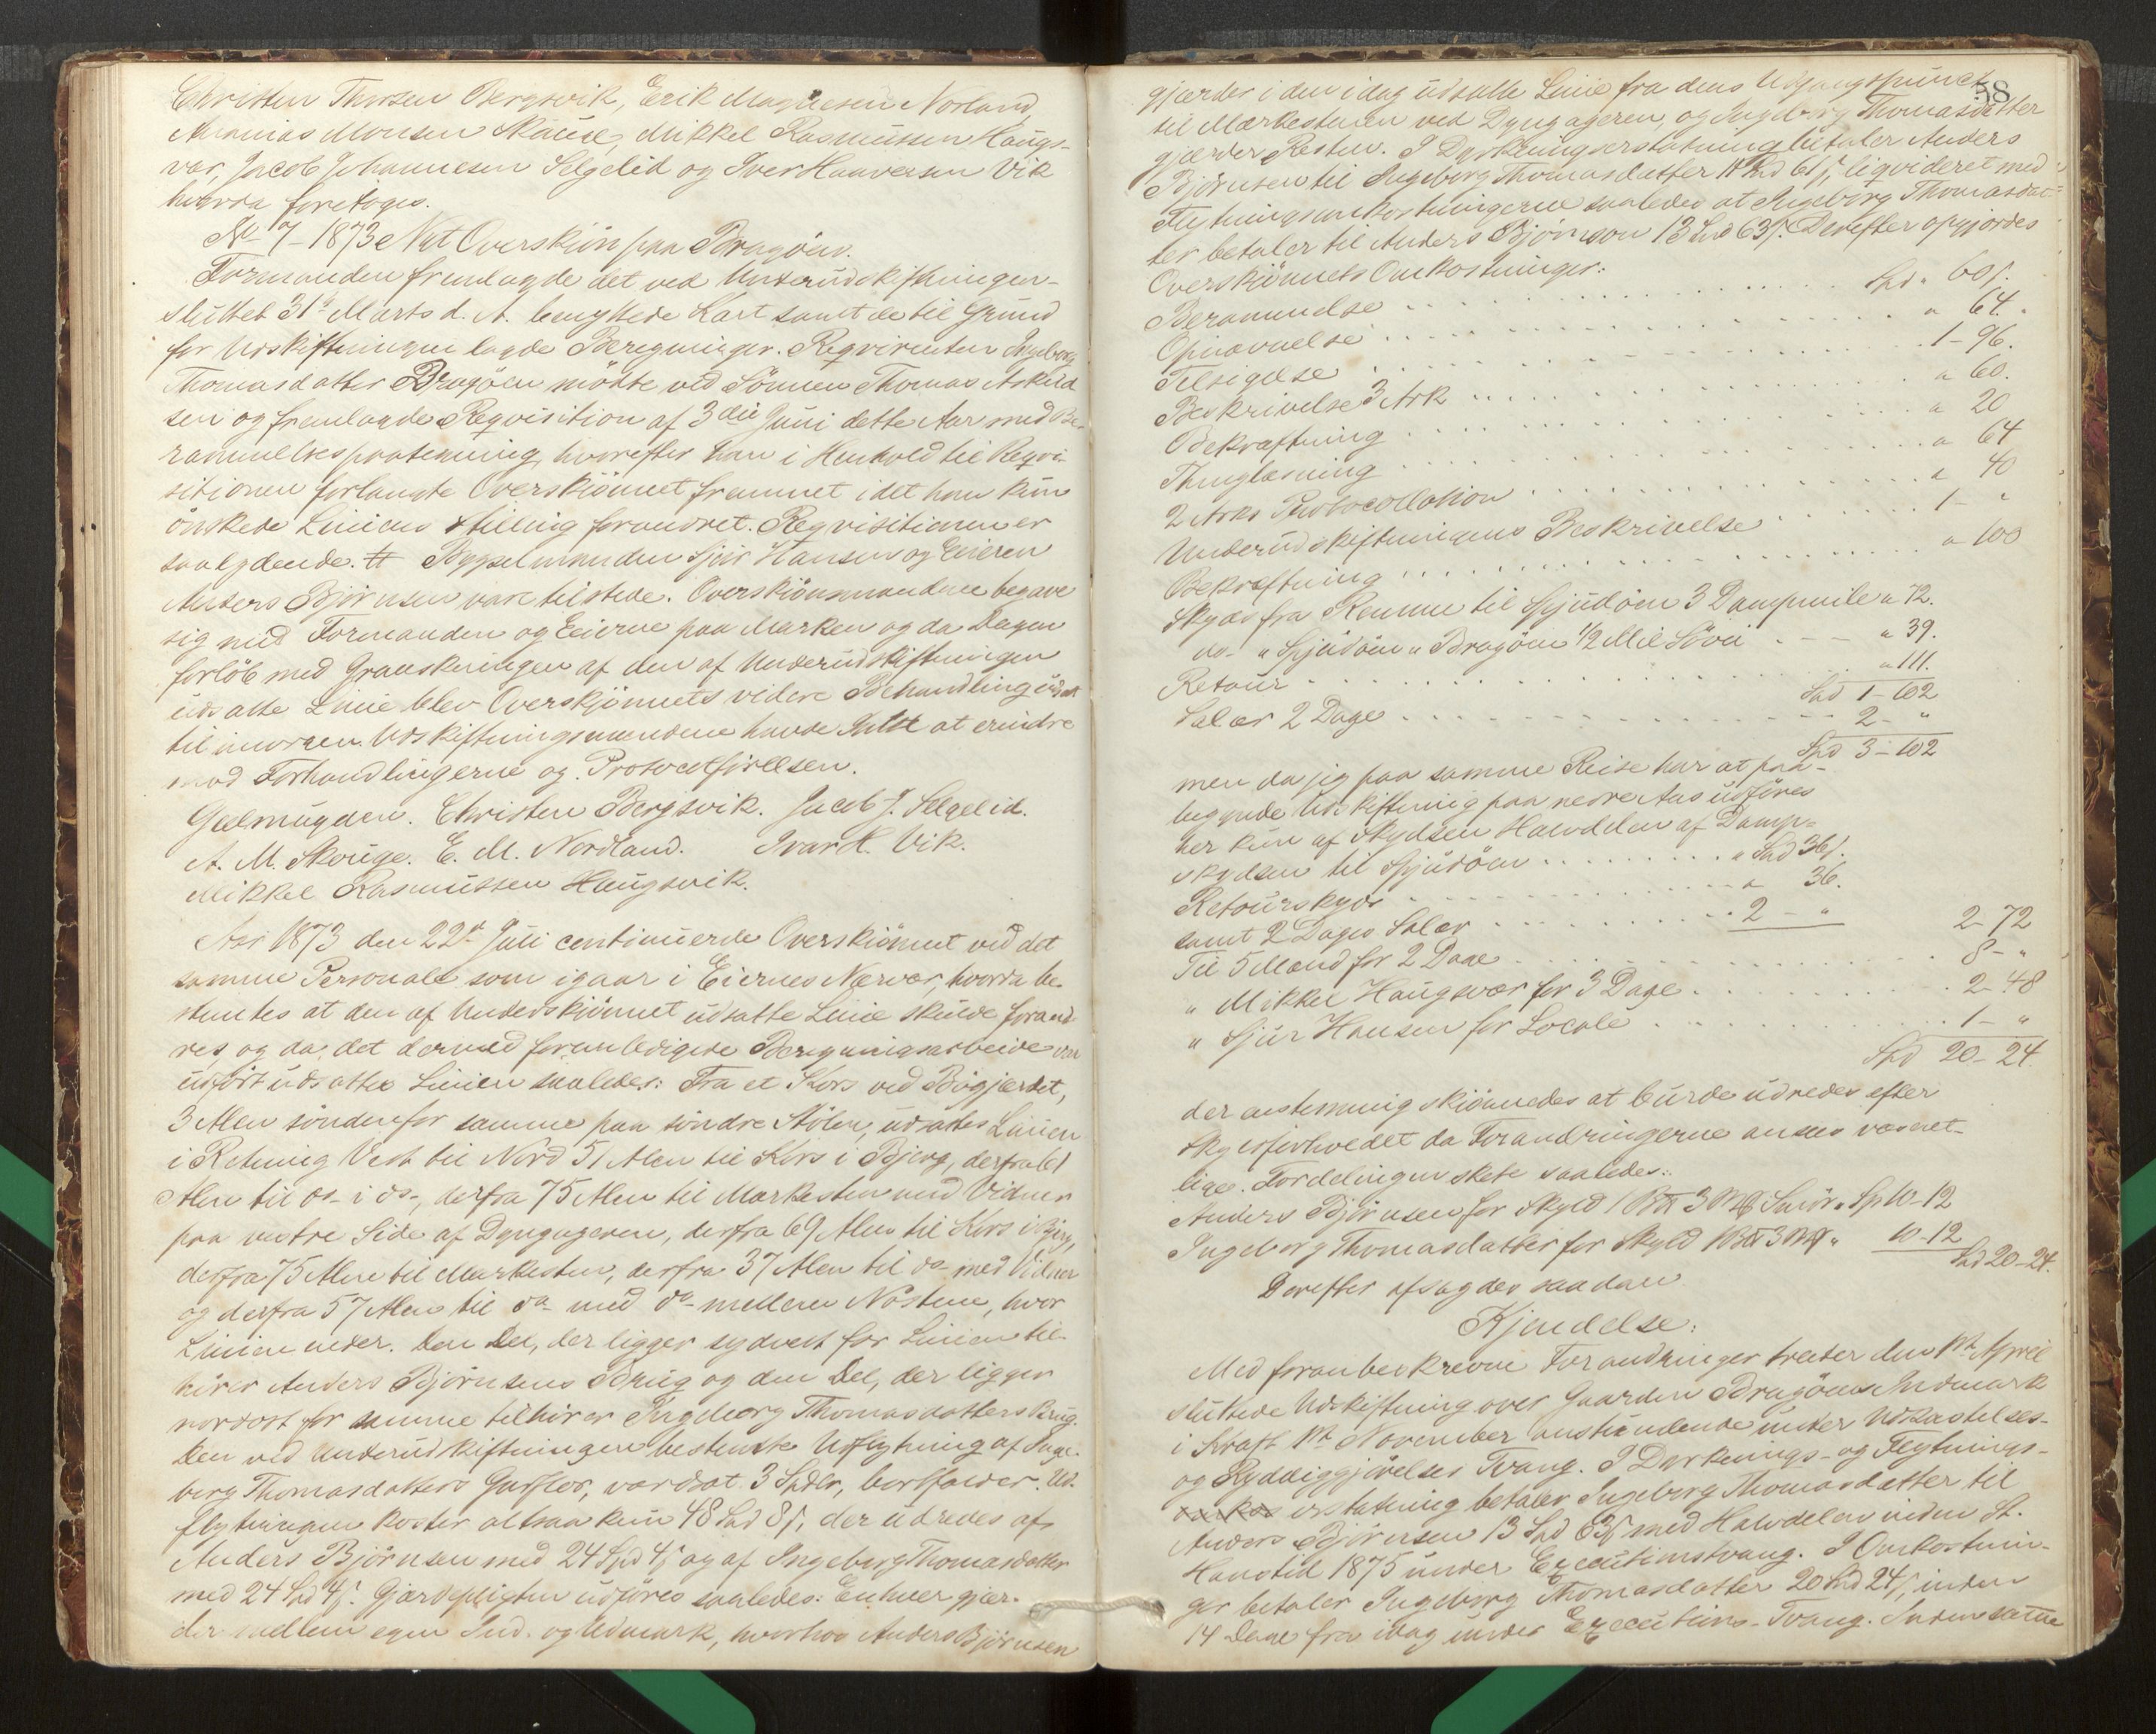 Christen Thorsen Bergsvik, Erik Magnesen Norland,
Ananias Monsen Skauge, Mikkel Rasmussen Haugs-
vær, Jacob Johannesen Selgelid og Iver Haaversen Vik
hvorda foretoges.
No 7 - 1873 Nyt Overskjön paa Bragöen.
Formanden fremlagde det ved Underudskiftningen
sluttet 31te Marts d. A. benyttede Kart samt de til Grund
for Udskiftningen lagde Beregninger. Reqvirenten Ingeborg
Thomasdatter Bragöen mödte ved Sönnen Thomas Askild
sen og fremlagde Reqvisition af 3die Juni dette Aar med Be-
rammelsespaategning, hvorefter han i Henhold til Reqvi-
sitionen forlangte Overskjönnet fremmet idet han kun
önskede Liniens Stilling forandret. Reqvisitionen er
saalydende. # Bygselmanden Sjur Hansen og Eieren
Anders Björnsen vare tilstede. Overskjönsmændene begave
sig med Formanden og Eierne paa Marken og da Dagen
forlöb med Granskningen af den af Underudskiftningen
udsatte Linie blev Overskjönnets videre Behandling udsat
til imorgen. Udskiftningsmændene havde Intet at erindre
mod Forhandlingerne og Protocolförelsen.
Geelmuyden. Christen Bergsvik. Jacob J. Selgelid.
A. M. Skouge. E. M. Nordland. Ivar H. Vik.
Mikkel Rasmussen Haugsvik.
Aar 1873 den 22de Juli continuerede Overskjönnet ved det
samme Personale som igaar i Eiernes Nærvær, hvorda be-
stemtes at den af Underskjönnet udsatte Linie skulde forand-
res, og da det dermed foranledigede Beregningsarbeide var
udfört udsattes Linien saaledes: Fra et Kors ved Bögjærdet,
3 Alen söndenfor samme paa söndre Stölen, udsattes Linien
i Retning Vest til Nord 51 Alen til Kors i Bjerg, derfra 61
Alen til do i do, derfra 75 Alen til Markesten med Vidner
paa vestre Side af Dyngageren, derfra 69 Alen til Kors i Bjerg,
derfra 75 Alen til Markesten, derfra 37 Alen til do med Vidner
og derfra 57 Alen til do med do mellem Nöstene, hvor
Linien ender. Den Del, der ligger sydvest for Linien til-
hörer Anders Björnsens Brug og den Del, der ligger
nordost for samme tilhörer Ingeborg Thomasdatters Brug.
Den ved Underudskiftningen bestemte Udflytning af Inge-
borg Thomasdatters , værdsat 3 Spdlr, bortfalder. Ud-
flytningen koster altsaa kun 48 Spd 8 s, der udredes af
Anders Björnsen med 24 Spd 4 s og af Ingeborg Thomasdatter
med 24 Spd 4 s. Gjærdepligten udföres saaledes: Enhver gjær-
der mellem egen Ind- og Udmark, hvorhos Anders Björnsen
58
gjærder i den idag udsatte Linie fra dens Udgangspunct
til Markestenen ved Dyngageren, og Ingeborg Thomasdatter
gjærder Resten. I Dyrkningserstatning betaler Anders
Björnsen til Ingeborg Thomasdatter Spd 61 s, liqvideret med
Flytningsomkostningerne saaledes at Ingeborg Thomasdat-
ter betaler til Anders Björnson 13 Spd 63 s. Derefter opgjordes
Overskjönnets Omkostninger:
Berammelse . . . Spd " 60 s.
Opnævnelse . . . " 64.
Tilsigelse . . . 1 - 96.
Beskrivelse 3 Ark . . . " 60.
Bekræftning . . . " 20
Thinglæsning . . . " 64
2 Arks Protocollation . . . " 40
Underudskiftningens Beskrivelse . . . 1 - "
Bekræftning . . . " 100
Skyds fra Remme til Spjudöen 3 Dampmile " 72.
do " Spjudöen " Bragöen 1/2 Mil Sövei . - - " 39.
Retour . . . " 111.
Spd 1 - 102
Salær 2 Dage . . . 2 - "
Spd 3 - 102
men da jeg paa samme Reise har at paa-
begynde Udskiftning paa nedre Aas udföres
her kun af Skydsen Halvdelen af Damp-
skydsen til Spjudöen . . . " Spd 36 s.
Retourskyds . . . " 36.
samt 2 Dages Salær . . . 2 - " 2 - 72
Til 5 Mænd for 2 Dage . . . 8 - "
" Mikkel Haugsvær for 3 Dage . . . 2 - 48
" Sjur Hansen for Locale . . . 1 - "
Spd 20 - 24.
der enstemmig skjönnedes at burde udredes efter
Skyldforholdet da Forandringerne ansees væsent-
lige. Fordelingen skete saaledes:
Anders Björnsen for Skyld 1 3 Smör " Sp 10 - 12
Ingeborg Thomasdatter for Skyld 1 3 " 10 - 12
Spd 20 - 24.
Derefter afsagdes saadan
Kjendelse:
Med foranbeskrevne Forandringer træder den 1ste April
sluttede Udskiftning over Gaarden Bragöens Indmark
i Kraft 1ste November anstundende under Udkastelses-
og Ryddiggjörelses Tvang. I Dyrknings- og Flytnings-
erstatning betaler Ingeborg Thomasdatter til
Anders Björnsen 13 Spd 63 s med Halvdelen inden St.
Hanstid 1875 under Executionstvang. I Omkostnin-
ger betaler Ingeborg Thomasdatter 20 Spd 24 s, inden
14 Dage fra idag under Executions-Tvang. Inden samme